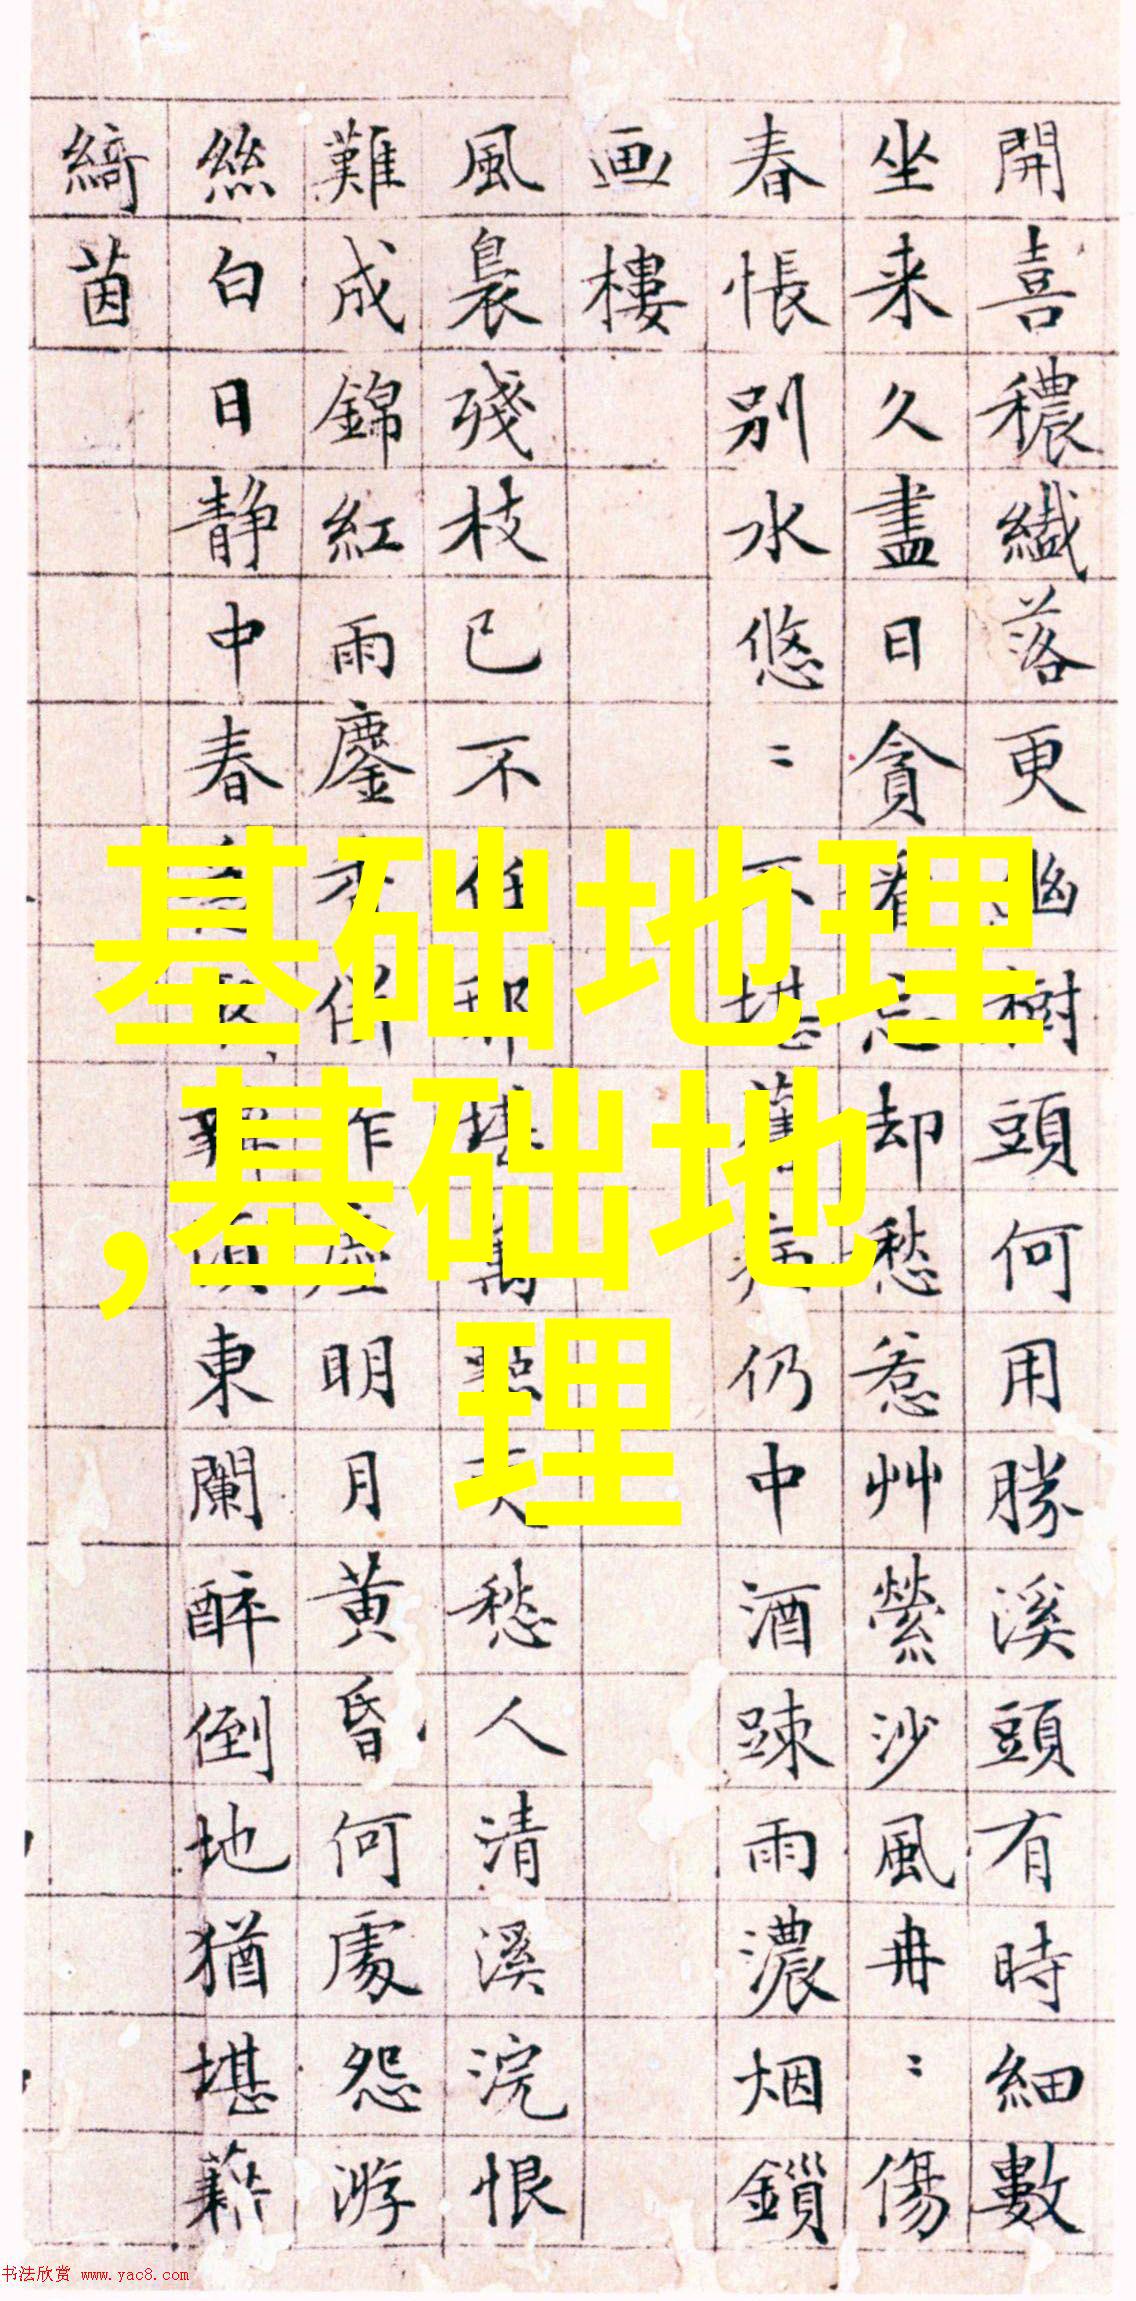 開喜穠纖落更幽樹頭何用勝溪頭有時細數
坐来久盡日貪看忘却愁惹艸縈沙風冉〻傷
春悵別水悠〻不堪舊病仍中酒踈雨濃烟鎖
画樓
風裊殘枝已不任那堪萬點愁人清溪浣恨
難成錦紅雨鏖香併作塵明月黄昏何處怨游
絲白日静中春東闌醉倒地猶堪藉
綺茵
基础地理
,基础地
理
书法欣赏 www.yac8.com